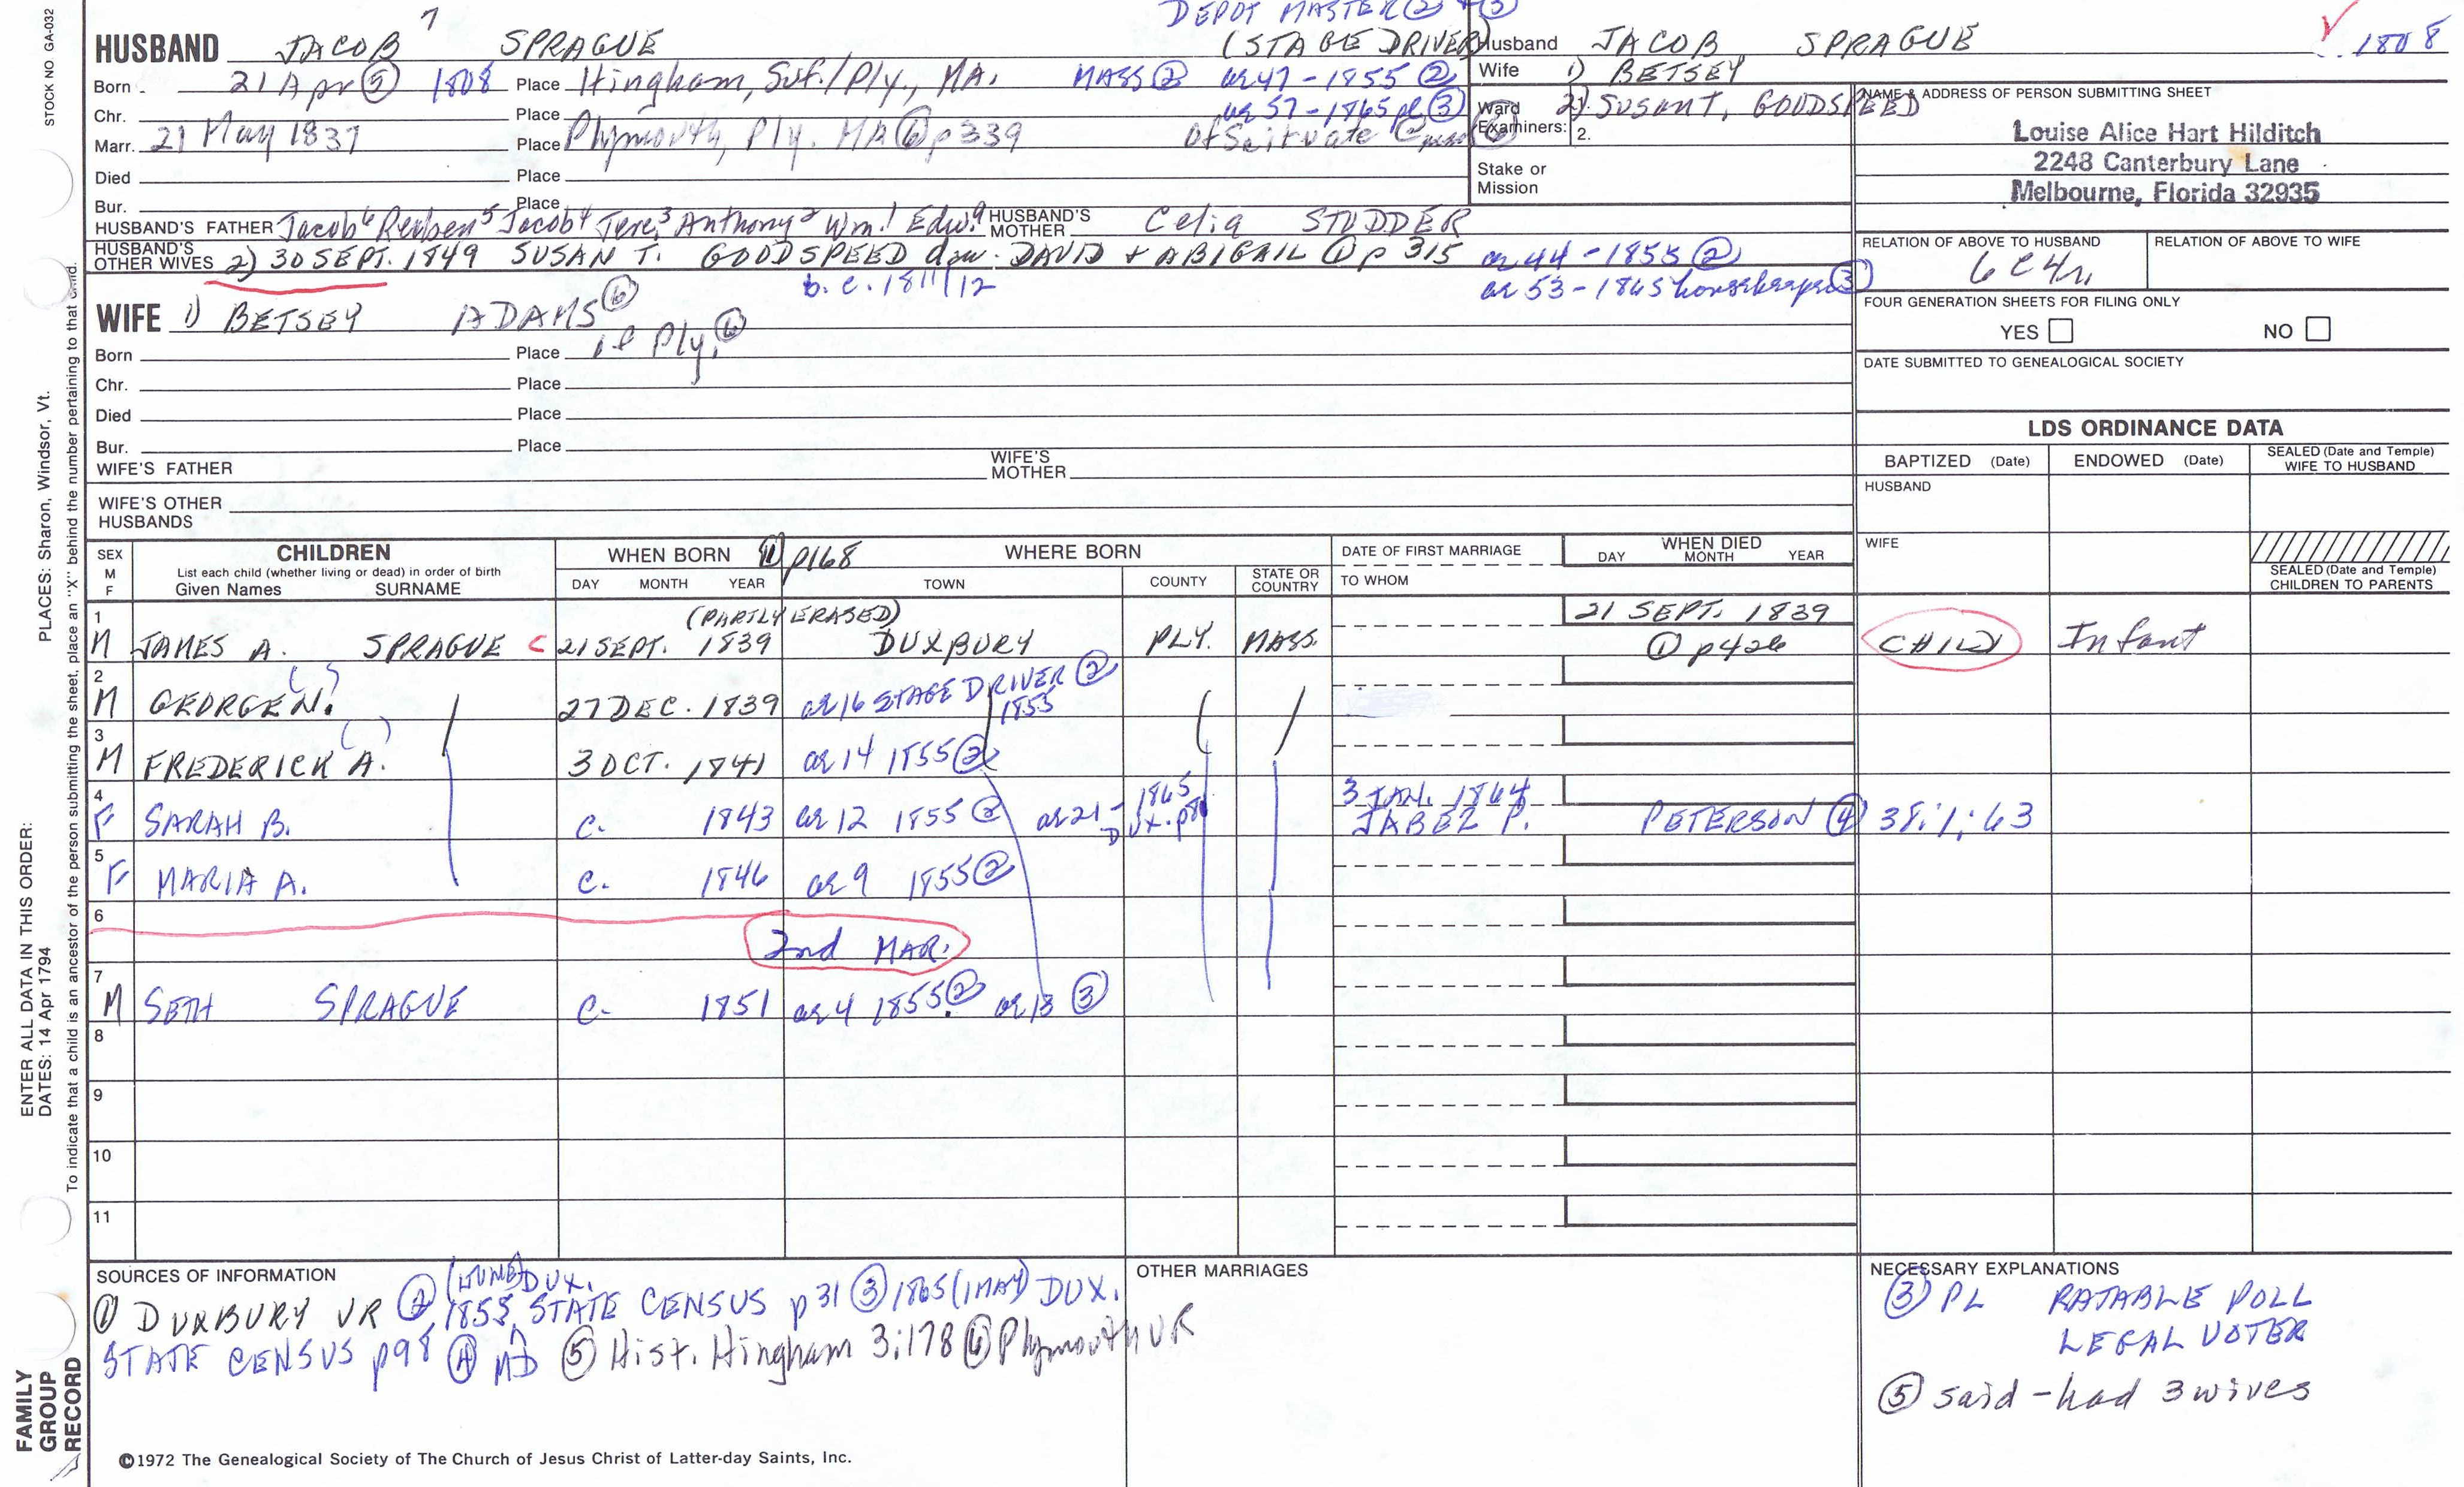 STOCK NO GA-032
DEPOT MASTER ② + ③
7
HUSBAND JACOB SPRAGUE (STAGE DRIVER)
Husband JACOB SPRAGUE
1808
Born 21 Apr ⑤ 1808 Place Hingham, Suf./Ply., MA. MASS ② ae 47 - 1855 ②
Wife 1) BETSEY
Chr. Place ae 57 - 1865 pl ③
Ward 2) SUSAN T. GOODSPEED
Examiners: 2.
Marr. 21 May 1837 Place Plymouth, Ply. MA ⑥ p 339 of Scituate ⑥
Died Place
Stake or
Mission
Bur. Place
NAME & ADDRESS OF PERSON SUBMITTING SHEET
Louise Alice Hart Hilditch
2248 Canterbury Lane
Melbourne, Florida 32935
HUSBAND'S FATHER Jacob⁶ Reuben⁵ Jacob⁴ Jere³ Anthony² Wm.¹ Edwᵃ HUSBAND'S MOTHER Celia STUDDER
HUSBAND'S OTHER WIVES 2) 30 SEPT. 1849 SUSAN T. GOODSPEED dau. DAVID + ABIGAIL ① p 315 ae 44 - 1855 ②
b. c. 1811/12 ae 53 - 1865 housekeeper ③
RELATION OF ABOVE TO HUSBAND
6C4r
RELATION OF ABOVE TO WIFE
FOUR GENERATION SHEETS FOR FILING ONLY
YES NO
DATE SUBMITTED TO GENEALOGICAL SOCIETY
WIFE 1) BETSEY ADAMS ⑥
Born Place of Ply. ⑥
Chr. Place
Died Place
Bur. Place
WIFE'S FATHER WIFE'S MOTHER
WIFE'S OTHER HUSBANDS
LDS ORDINANCE DATA
BAPTIZED (Date) ENDOWED (Date) SEALED (Date and Temple) WIFE TO HUSBAND
HUSBAND
WIFE
SEALED (Date and Temple) CHILDREN TO PARENTS
SEX M F
CHILDREN
List each child (whether living or dead) in order of birth
Given Names SURNAME
WHEN BORN ① p168 WHERE BORN
DAY MONTH YEAR TOWN COUNTY STATE OR COUNTRY
DATE OF FIRST MARRIAGE
TO WHOM
WHEN DIED
DAY MONTH YEAR
(PARTLY ERASED) 21 SEPT. 1839
1 M JAMES A. SPRAGUE C 21 SEPT. 1839 DUXBURY PLY. MASS. ① p426 CHILD Infant
2 M GEORGE N. 27 DEC. 1839 ae 16 STAGE DRIVER ② 1855
3 M FREDERICK A. 3 OCT. 1841 ae 14 1855 ②
4 F SARAH B. c. 1843 ae 12 1855 ② ae 21 - 1865 DUX. p86 3 JAN. 1864 JABEZ P. PETERSON ④ 38:1:63
5 F MARIA A. c. 1846 ae 9 1855 ②
6 2nd MAR.
7 M SETH SPRAGUE c. 1851 ae 4 1855 ② ae 13 ③
8
9
10
11
SOURCES OF INFORMATION
① DUXBURY VR ② 1855 (JUNE) DUX. STATE CENSUS p 31 ③ 1865 (1 MAY) DUX.
STATE CENSUS p98 ④ MD ⑤ Hist. Hingham 3:178 ⑥ Plymouth VR
OTHER MARRIAGES
NECESSARY EXPLANATIONS
③ PL RATABLE POLL
LEGAL VOTER
⑤ said - had 3 wives
©1972 The Genealogical Society of The Church of Jesus Christ of Latter-day Saints, Inc.
FAMILY GROUP RECORD
ENTER ALL DATA IN THIS ORDER:
DATES: 14 Apr 1794
PLACES: Sharon, Windsor, Vt.
To indicate that a child is an ancestor of the person submitting the sheet, place an "X" behind the number pertaining to that child.